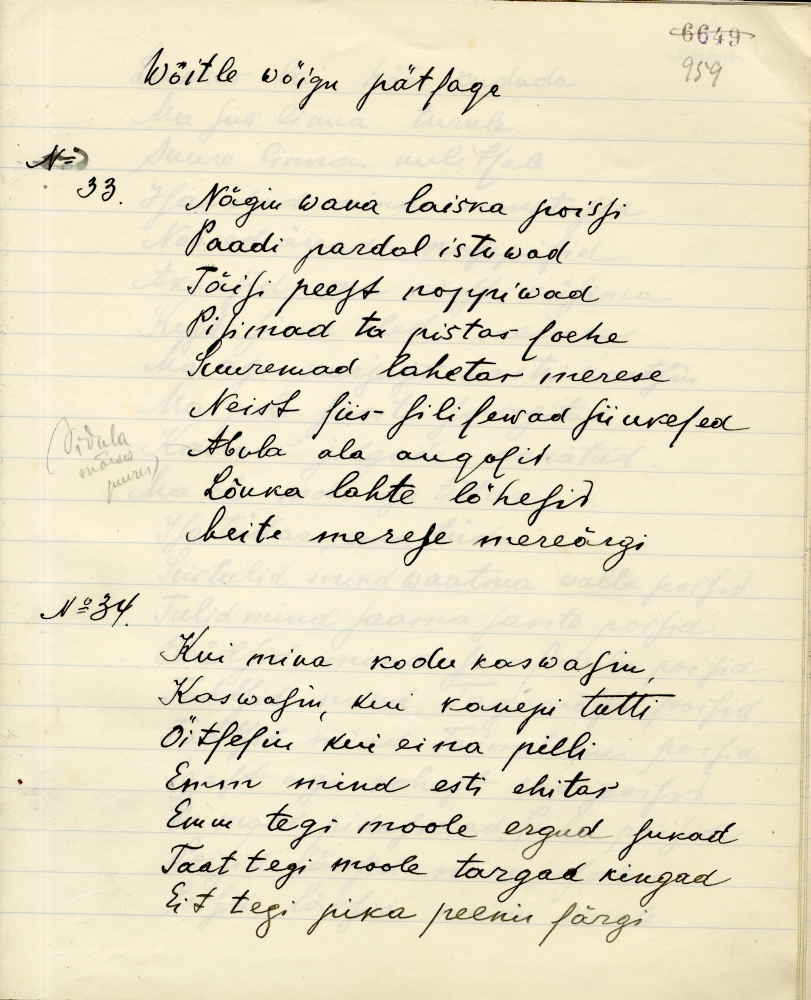 6649
959
Wõitle wõigu pätsage
No
33.
Nägin wana laiska poissi
Paadi pardal istuwad
Täisi peest noppiwad
Pisimad ta pistas soehe
Suuremad lahetas merese
Neist siis silisewad siinkesed
Abula ala angosid
Lõuka lahte lõhesid
meite merese mereärgi
(Sidula
mõisa
juures)
No 34.
Kui mina kodu kaswasin,
Kaswasin, kui kanepi tutti
Õitsesin kui eina pilli
Emm mind esti ehitas
Emm tegi moole ergud sukad
Taat tegi moole targad kingad
Eit tegi pika peenie särgi